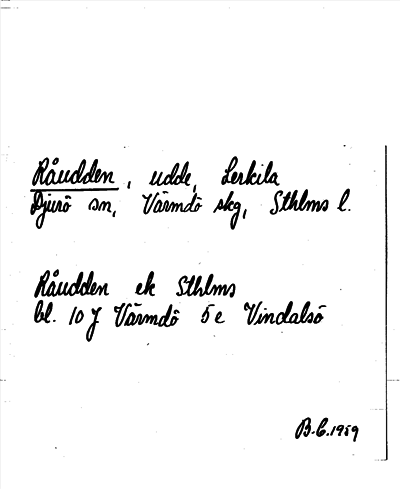 Råudden, udde, Lerkila
Djurö sn, Värmdö skg, Sthlms l.
Råudden ek Sthlms
bl. 10 J Värmdö 5 e Vindalsö
B.C. 1959